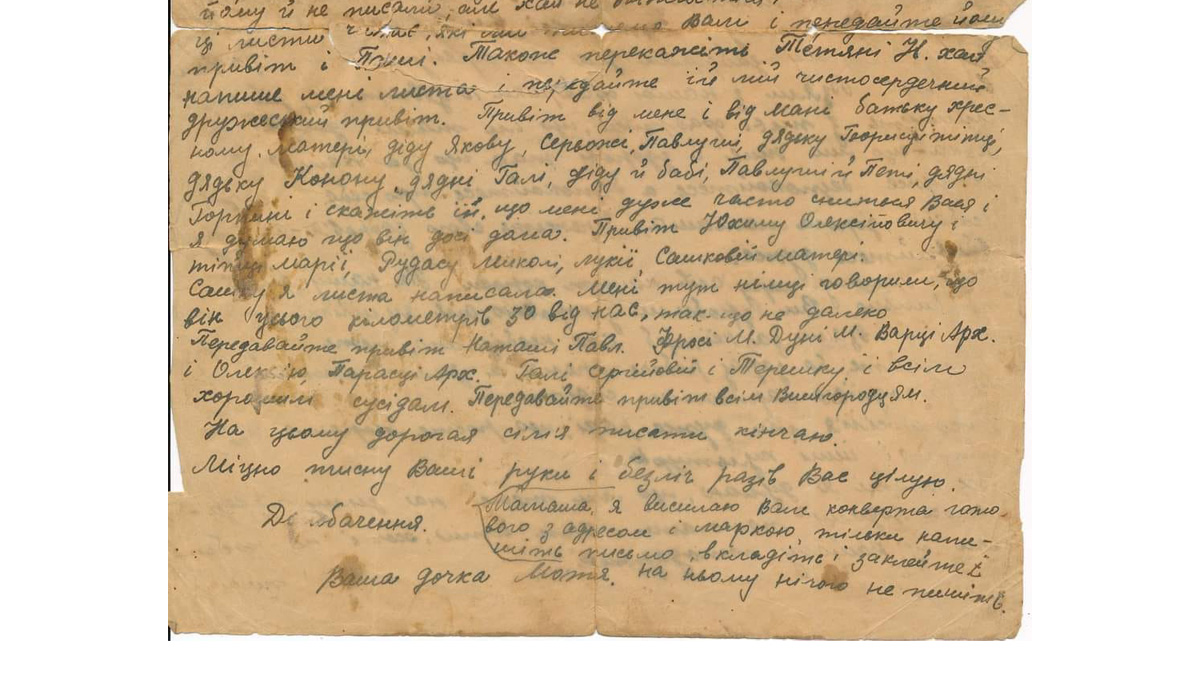 йому й не писали, але хай не
ці листи Вам і передайте йому
привіт і Поні. Також перекажіть Тетяні Н. хай
напише мені листа і передайте їй мій чистосердечний
дружеский привіт. Привіт від мене і від Мані батьку хрес-
ному, матері, діду Якову, Серьожі, Павлуші, дядьку
дядьку Конону, дядні Галі, діду й бабі, Павлуші й Петі, дядні
Горпині і скажіть їй, що мені дуже часто сниться Вася і
я думаю що він досі дома. Привіт Юхиму Олексійовичу і
тітці Марії, Рудасу Миколі, Лукії, Сашковій матері.
Сашку я листа написала. Мені тут німці говорили, що
він усього кілометрів 30 від нас, так що не далеко
Передавайте привіт Наташі Павл. Фросі М. Дуні М. Варці Арх.
і Олексію, Парасці Арх. Галі Сергійовій і Терешку і всім
хорошим сусідам. Передавайте привіт всім Вишгородцям.
На цьому дорогая сім'я писати кінчаю.
Міцно тисну Ваші руки і безліч разів Вас цілую.
До побачення.
Мамаша, я висилаю Вам конверта гото
вого з адресом і маркою, тільки напи-
шіть письмо, вкладіть і заклейте й
Ваша дочка Мотя. на ньому нічого не пишіть.